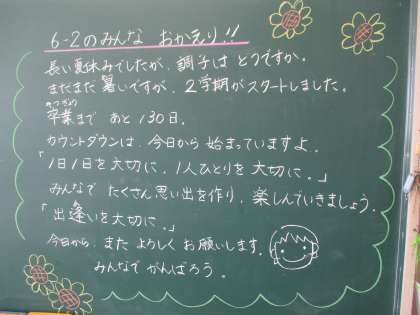 6-2のみんな おかえり!!
長い夏休みでしたが、調子は どうですか。
まだまだ 暑いですが、2学期がスタートしました。
卒業まで あと130日。
カウントダウンは、今日から 始まっていますよ。
「1日1日を大切に、1人ひとりを 大切に。」
みんなで たくさん思い出を作り、楽しんでいきましょう。
「出逢いを大切に。」
今日から、また よろしく お願いします。
みんなで がんばろう。